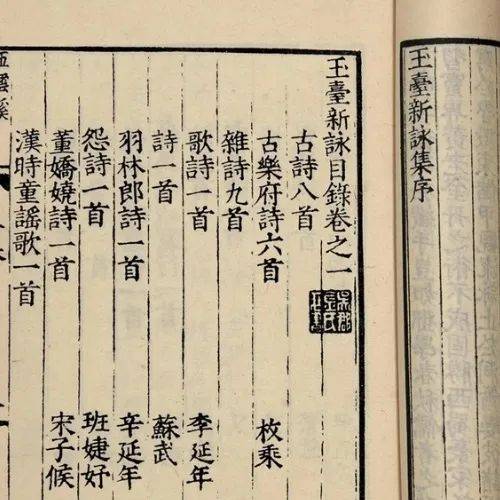 玉臺新詠集序
玉臺新詠目錄卷之一
古詩八首
古樂府詩六首 枚乘
雜詩九首
歌詩一首 李延年
詩一首 蘇武
羽林郎詩一首 辛延年
怨詩一首 班婕妤
董嬌嬈詩一首 宋子候
漢時童謠歌一首
五雲溪